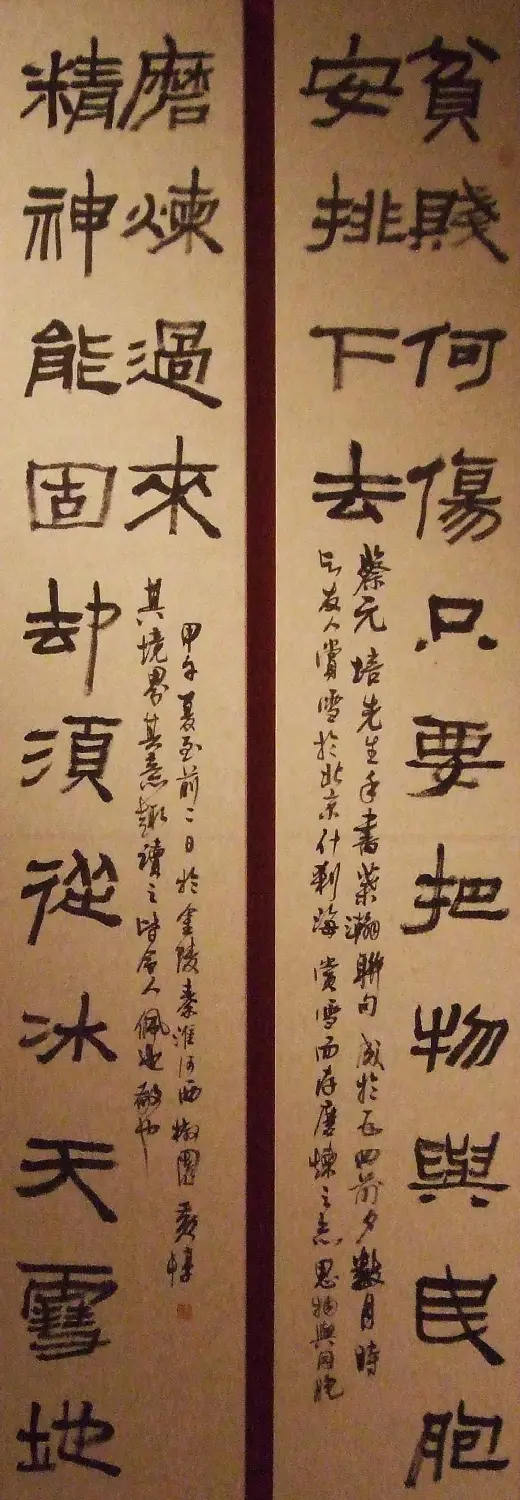 貧賤何傷只要把物與民胞
安排下去
蔡元培先生手書葉瀚聯句成於五四前夕數月時
与友人賞雪於北京什刹海賞雪而存磨煉之志思物與同胞
精神能固却須從冰天雪地
磨煉過來
其境界其意趣讀之時令人佩也敬也
甲午夏至前二日於金陵秦淮河西椒園黃惇